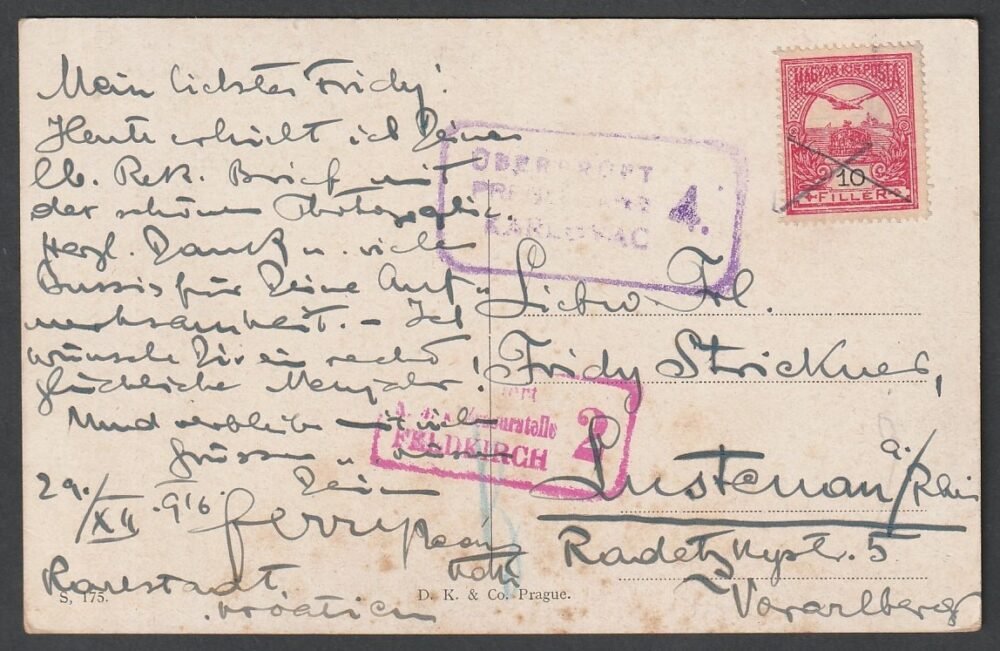 Mein liebstes Fridy!
Heute erhielt ich Deinen
lb. Rek. Brief mit
der schönen Photographie.
Herzl. Dank u. viele
Bussis für Deine Auf-
merksamkeit. – Ich
wünsche Dir ein recht
glückliches Neujahr!
Und verbleibe mit vielen
Grüssen u. Küssen
Dein
29./XII. 916. Ferry
Karlstadt
Kroatien
S, 175.
D. K. & Co. Prague.
MAGYAR KIR. POSTA
10
FILLER
ÜBERPRÜFT
KARLOVAC
4.
Zensurstelle
FELDKIRCH
2
Liebw. Frl.
Fridy Strickner,
Lustenau a/Rhein
Radetzkystr. 5
Vorarlberg